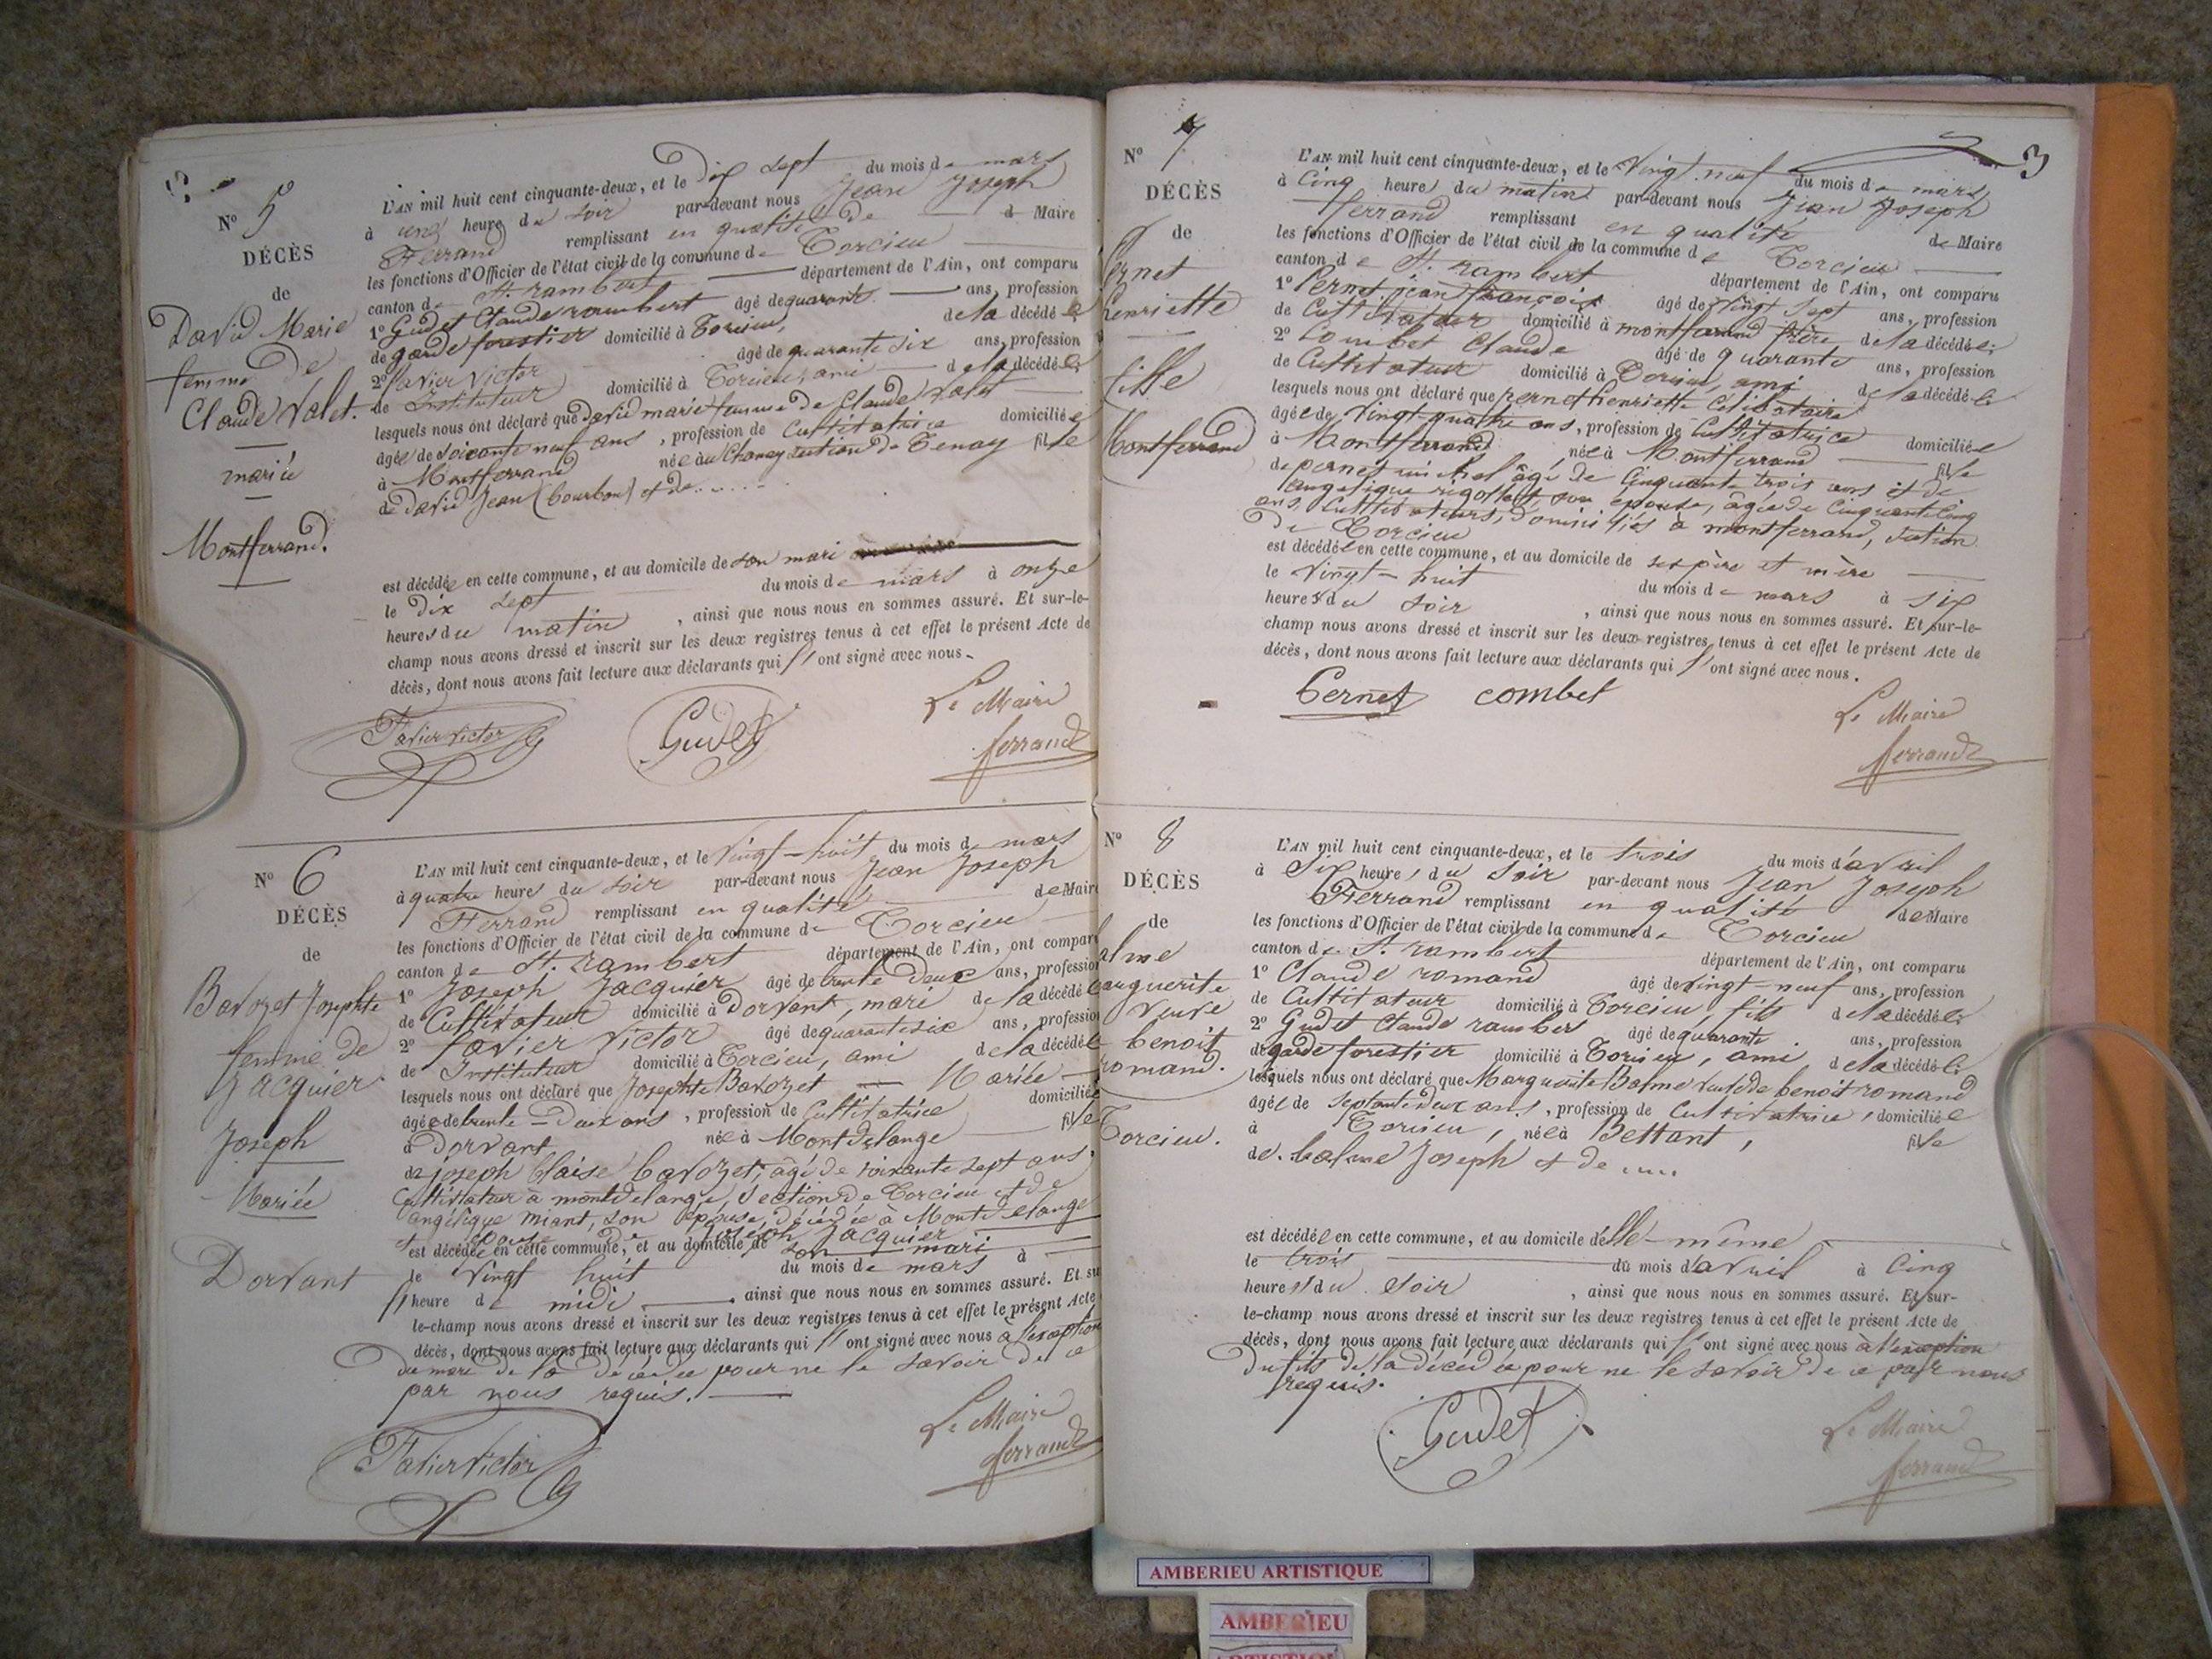 N° 5
DÉCÈS
de
David Marie
femme de
Claude Valet.
mariée
Montferrand.
L'AN mil huit cent cinquante-deux, et le Dix sept du mois de mars
à une heure du soir par-devant nous Jean Joseph
Ferrand remplissant en qualité de Maire
les fonctions d'Officier de l'état civil de la commune de Torcieu
canton de St. rambert département de l'Ain, ont comparu
1° Gudet Claude rambert âgé de quarante ans, profession
de garde forestier domicilié à Torcieu, de la décédée
2° favier Victor âgé de quarante six ans, profession
de Instituteur domicilié à Torcieu, ami de la décédée
lesquels nous ont déclaré que David marie femme de Claude Valet
âgée de soixante neuf ans, profession de Cultivatrice domiciliée
à Montferrand née au Chaney section de Tenay fille
de David Jean (bourbon) et de.....
est décédée en cette commune, et au domicile de son mari
le dix sept du mois de mars à onze
heures du matin, ainsi que nous nous en sommes assuré. Et sur-le-
champ nous avons dressé et inscrit sur les deux registres tenus à cet effet le présent Acte de
décès, dont nous avons fait lecture aux déclarants qui l'ont signé avec nous.
Favier Victor Gudet Le Maire
ferrand
N° 6
DÉCÈS
de
Bavozet Josephte
femme de
Jacquier
Joseph
Mariée
Dorvant
L'AN mil huit cent cinquante-deux, et le Vingt-huit du mois de mars
à quatre heures du soir par-devant nous Jean Joseph
Ferrand remplissant en qualité de Maire
les fonctions d'Officier de l'état civil de la commune de Torcieu
canton de St. rambert département de l'Ain, ont comparu
1° Joseph Jacquier âgé de trente Deux ans, profession
de Cultivateur domicilié à Dorvant, mari de la décédée
2° favier Victor âgé de quarante six ans, profession
de Instituteur domicilié à Torcieu, ami de la décédée
lesquels nous ont déclaré que Josephte Bavozet — Mariée
âgée de trente-Deux ans, profession de Cultivatrice domiciliée
à Dorvant née à Montdelange fille
de joseph blaise bavozet, âgé de soixante sept ans,
Cultivateur à montdelange, section de Torcieu et de
angélique miant, son épouse, décédée à Montdelange
et épouse de Joseph Jacquier
est décédée en cette commune, et au domicile de son mari
le Vingt huit du mois de mars à
l'heure de midi, ainsi que nous nous en sommes assuré. Et sur
le-champ nous avons dressé et inscrit sur les deux registres tenus à cet effet le présent Acte
décès, dont nous avons fait lecture aux déclarants qui l'ont signé avec nous à l'exception
du mari de la décédée pour ne le savoir de ce
par nous requis.
Favier Victor Le Maire
ferrand
3
N° 7
DÉCÈS
de
Pernet
henriette
fille
Montferrand
L'AN mil huit cent cinquante-deux, et le Vingt-neuf du mois de mars
à Cinq heures du matin par-devant nous Jean Joseph
ferrand remplissant en qualité de Maire
les fonctions d'Officier de l'état civil de la commune de Torcieu
canton de St. rambert département de l'Ain, ont comparu
1° Pernet jean françois âgé de vingt sept ans, profession
de Cultivateur domicilié à montferrand frère, de la décédée
2° Combet Claude âgé de quarante ans, profession
de Cultivateur domicilié à Torcieu, ami de la décédée
lesquels nous ont déclaré que pernet henriette Célibataire
âgée de Vingt-quatre ans, profession de Cultivatrice domiciliée
à Montferrand née à Montferrand fille
de pernet michel âgé de Cinquante trois ans et de
angelique rigollet son épouse, âgée de Cinquante cinq
ans, Cultivateurs, domiciliés à montferrand, section
de Torcieu
est décédée en cette commune, et au domicile de ses père et mère
le Vingt-huit du mois de mars à six
heures du soir, ainsi que nous nous en sommes assuré. Et sur-le-
champ nous avons dressé et inscrit sur les deux registres tenus à cet effet le présent Acte de
décès, dont nous avons fait lecture aux déclarants qui l'ont signé avec nous.
Pernet combet Le Maire
ferrand
N° 8
DÉCÈS
de
alme
arguerite
veuve
benoit
romand.
Torcieu.
L'AN mil huit cent cinquante-deux, et le trois du mois d'avril
à Six heures du soir par-devant nous Jean Joseph
Ferrand remplissant en qualité de Maire
les fonctions d'Officier de l'état civil de la commune de Torcieu
canton de St. rambert département de l'Ain, ont comparu
1° Claude romand âgé de vingt-neuf ans, profession
de Cultivateur domicilié à Torcieu, fils de la décédée
2° Gudet Claude rambert âgé de quarante ans, profession
de garde forestier domicilié à Torcieu, ami de la décédée
lesquels nous ont déclaré que Marguerite Balme veuve de benoit romand
âgée de septante deux ans, profession de Cultivatrice, domiciliée
à Torcieu, née à Bettant, fille
de balme Joseph et de ....
est décédée en cette commune, et au domicile d'elle-même
le trois du mois d'avril à Cinq
heures du soir, ainsi que nous nous en sommes assuré. Et sur-
le-champ nous avons dressé et inscrit sur les deux registres tenus à cet effet le présent Acte de
décès, dont nous avons fait lecture aux déclarants qui l'ont signé avec nous à l'exception
du fils de la décédée pour ne le savoir de ce par nous
requis.
Gudet Le Maire
ferrand
AMBERIEU ARTISTIQUE
AMBERIEU
ARTISTIQUE